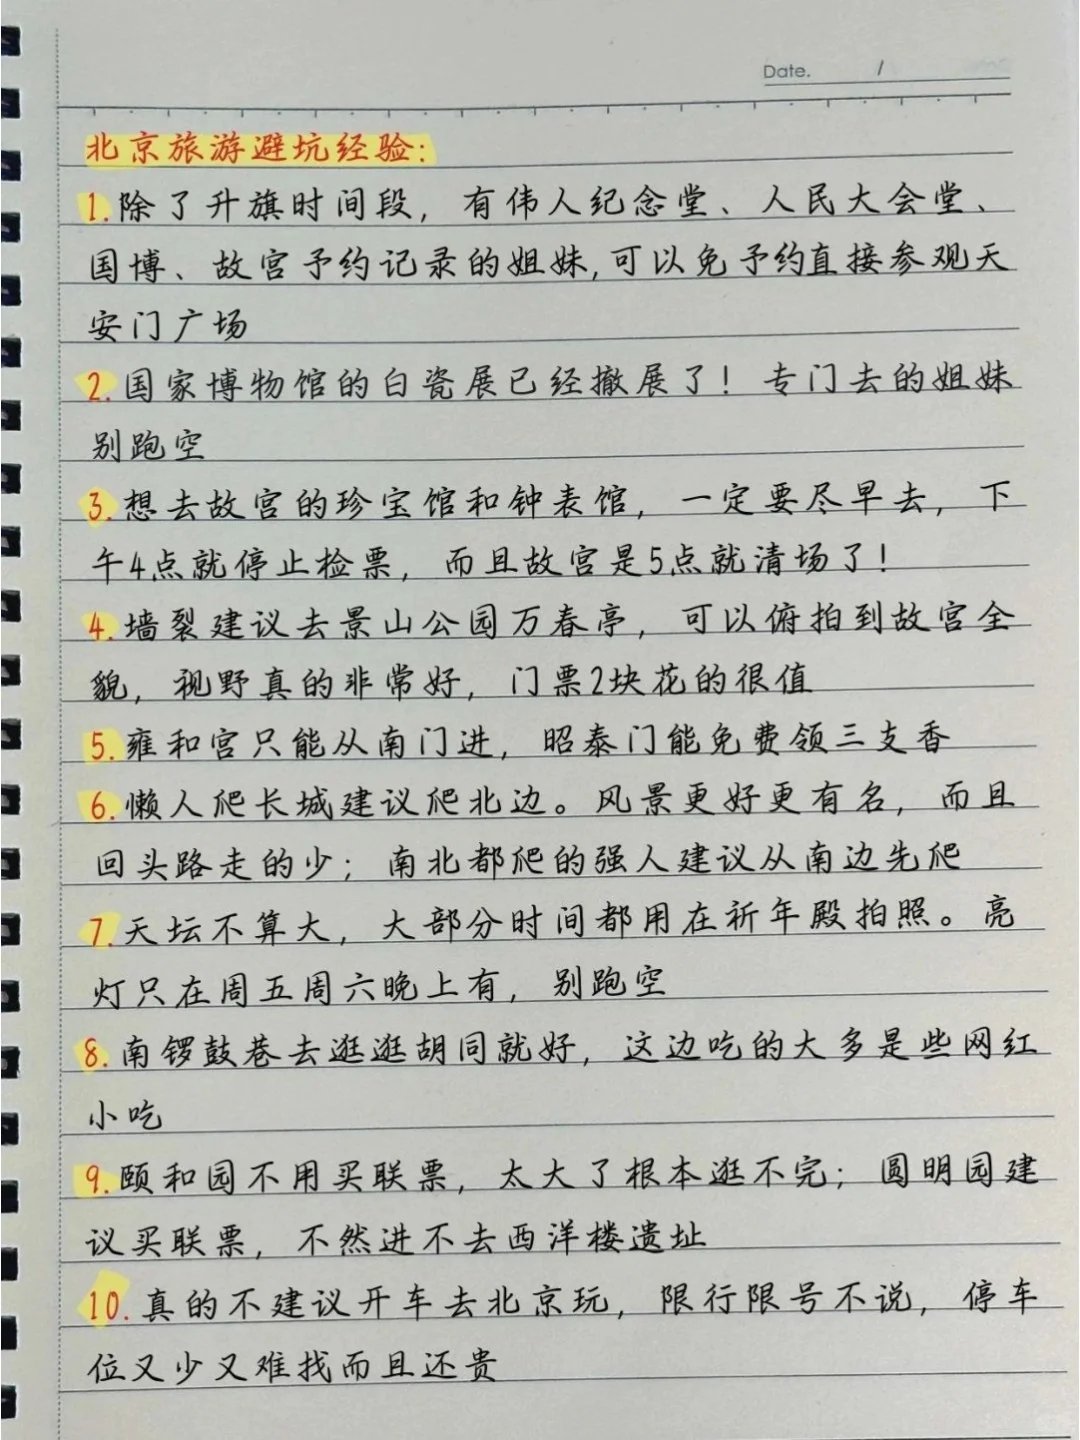 Date. /
北京旅游避坑经验:
1.除了升旗时间段，有伟人纪念堂、人民大会堂、
国博、故宫予约记录的姐妹,可以免予约直接参观天
安门广场
2.国家博物馆的白瓷展已经撤展了！专门去的姐妹
别跑空
3.想去故宫的珍宝馆和钟表馆，一定要尽早去，下
午4点就停止检票，而且故宫是5点就清场了！
4.墙裂建议去景山公园万春亭，可以俯拍到故宫全
貌，视野真的非常好，门票2块花的很值
5.雍和宫只能从南门进，昭泰门能免费领三支香
6.懒人爬长城建议爬北边。风景更好更有名，而且
回头路走的少；南北都爬的强人建议从南边先爬
7.天坛不算大，大部分时间都用在祈年殿拍照。亮
灯只在周五周六晚上有，别跑空
8.南锣鼓巷去逛逛胡同就好，这边吃的大多是些网红
小吃
9.颐和园不用买联票，太大了根本逛不完；圆明园建
议买联票，不然进不去西洋楼遗址
10.真的不建议开车去北京玩，限行限号不说，停车
位又少又难找而且还贵